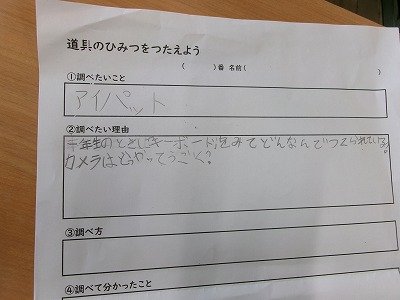 道具のひみつをつたえよう
(　　　)番 名前(　　　　　　　)
①調べたいこと
アイパット
②調べたい理由
年生のときにキーボードをみてどんなんでつくられている
カメラはどうやってうごく?
③調べ方
④調べて分かったこと